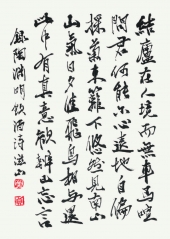 結廬在人境而無車馬喧
問君何能爾心遠地自偏
採菊東籬下悠然見南山
山氣日夕佳飛鳥相與還
此中有真意欲辨已忘言
錄陶淵明飲酒詩